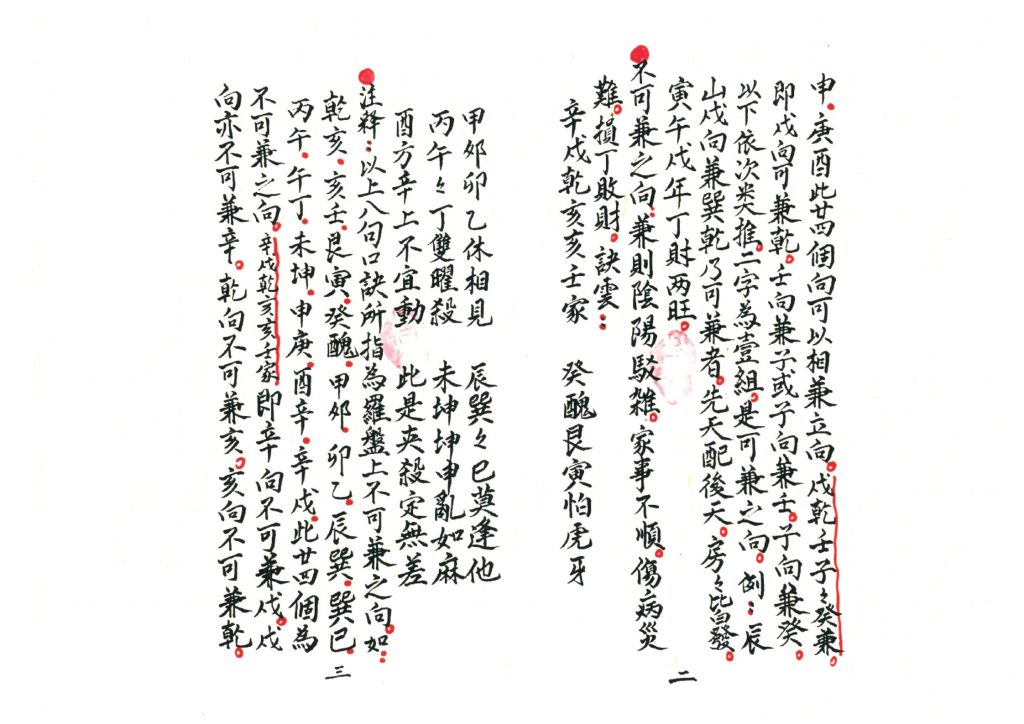 申。庚酉此廿四個向可以相兼立向。戌乾壬子々癸兼。
即戌向可兼乾。壬向兼子或子向兼壬。子向兼癸。
以下依次类推。二字為壹組。是可兼之向。例：辰
山戌向兼巽乾乃可兼者。先天配後天。房々皆發。
寅午戌年丁財两旺。
不可兼之向：兼則陰陽駁雑。家事不順。傷病災
難。損丁敗財。訣雲：
辛戌乾亥亥壬家　癸醜艮寅怕虎牙
二
甲夘卯乙休相見　辰巽々巳莫逢他
丙午々丁雙曜殺　未坤坤申亂如麻
酉方辛上不宜動　此是夾殺定無差
注釋：以上八句口訣所指為羅盤上不可兼之向。如：
乾亥。亥壬。艮寅。癸醜。甲夘。卯乙。辰巽。巽巳。
丙午。午丁。未坤。申庚。酉辛。辛戌。此廿四個為
不可兼之向。辛戌乾亥亥壬家即辛向不可兼戌。戌
向亦不可兼辛。乾向不可兼亥。亥向不可兼乾。
三